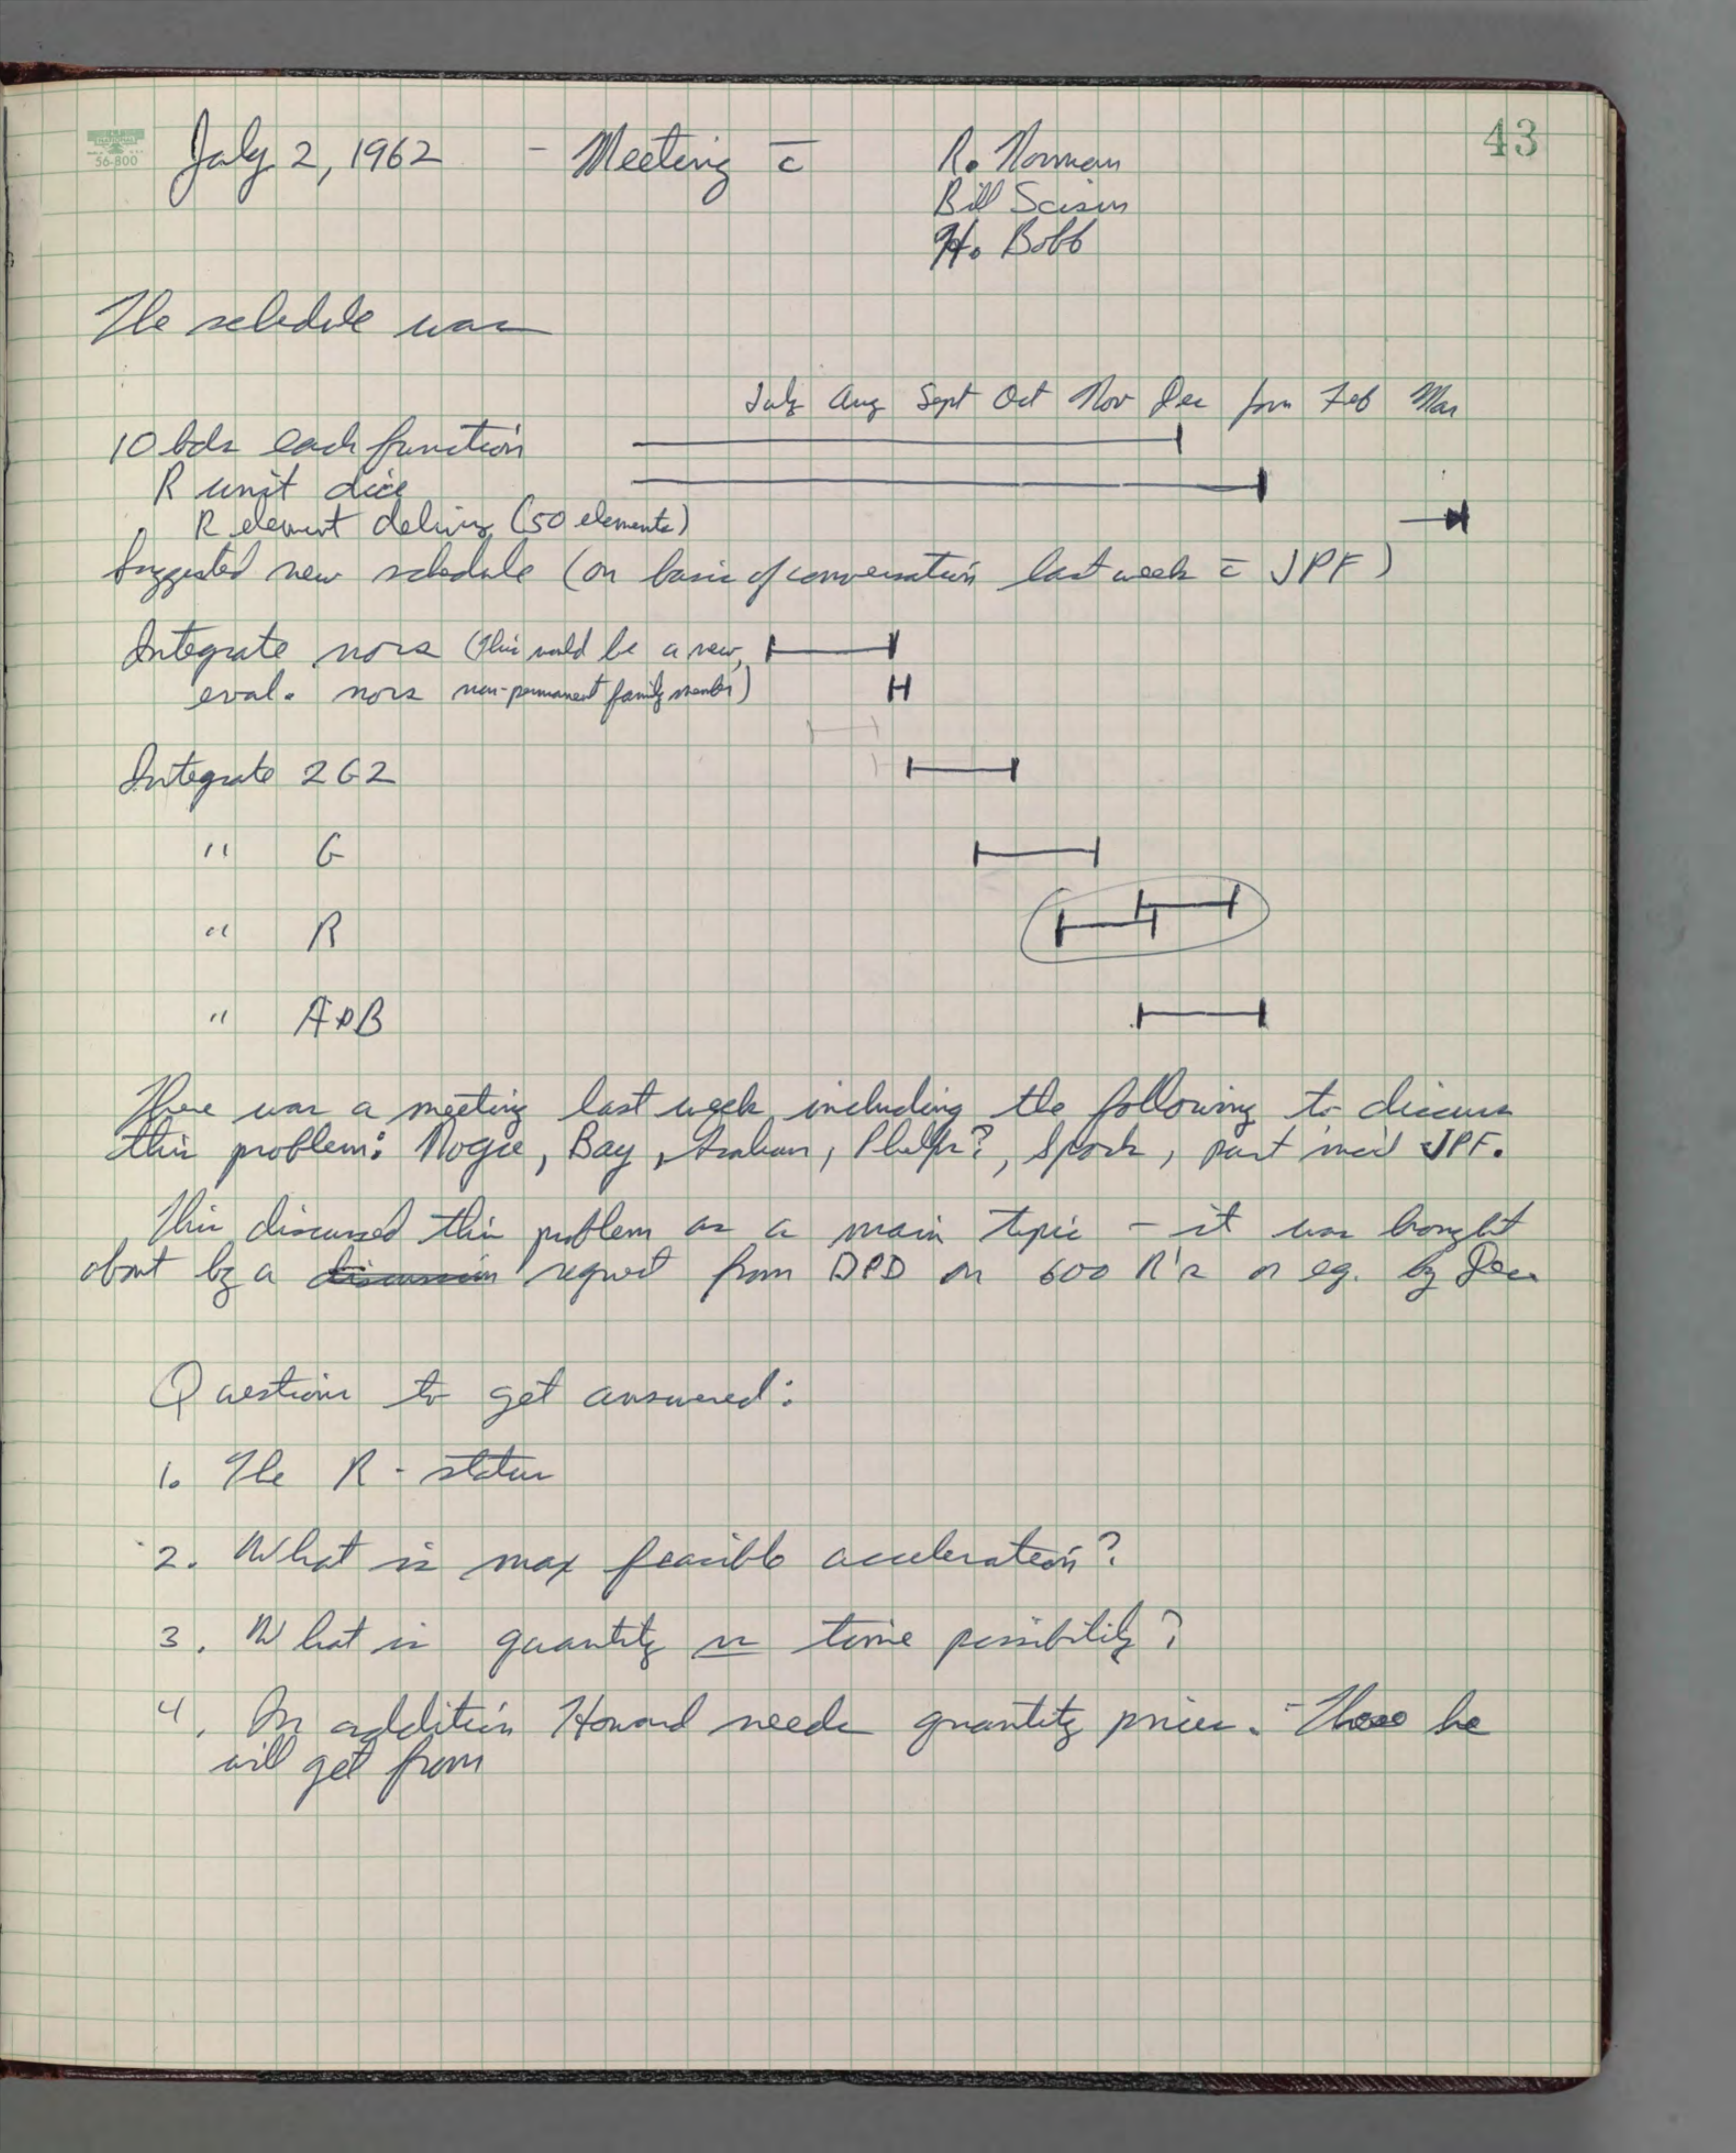 43
56-800
July 2, 1962 - Meeting c̄ R. Norman
Bill Scisin
H. Bobb
The schedule was
July Aug Sept Oct Nov Dec Jan Feb Mar
10 bds each function
R unit dice
R element delivery (50 elements)
Suggested new schedule (on basis of conversation last week c̄ JPF)
Integrate nors (This would be a new,
eval. nors non-permanent family member)
Integrate 2G2
" G
" R
" A+B
There was a meeting last week including the following to discuss
this problem: Noyce, Bay, Graham, Phelps?, Sporck, part incid JPF.
This discussed this problem as a main topic - it was brought
about by a discussion request from DPD on 600 R's or eq. by Dec
Questions to get answered:
1. The R - status
2. What is max feasible acceleration?
3. What is quantity vs time possibility?
4. In addition Howard needs quantity prices. - These he
will get from